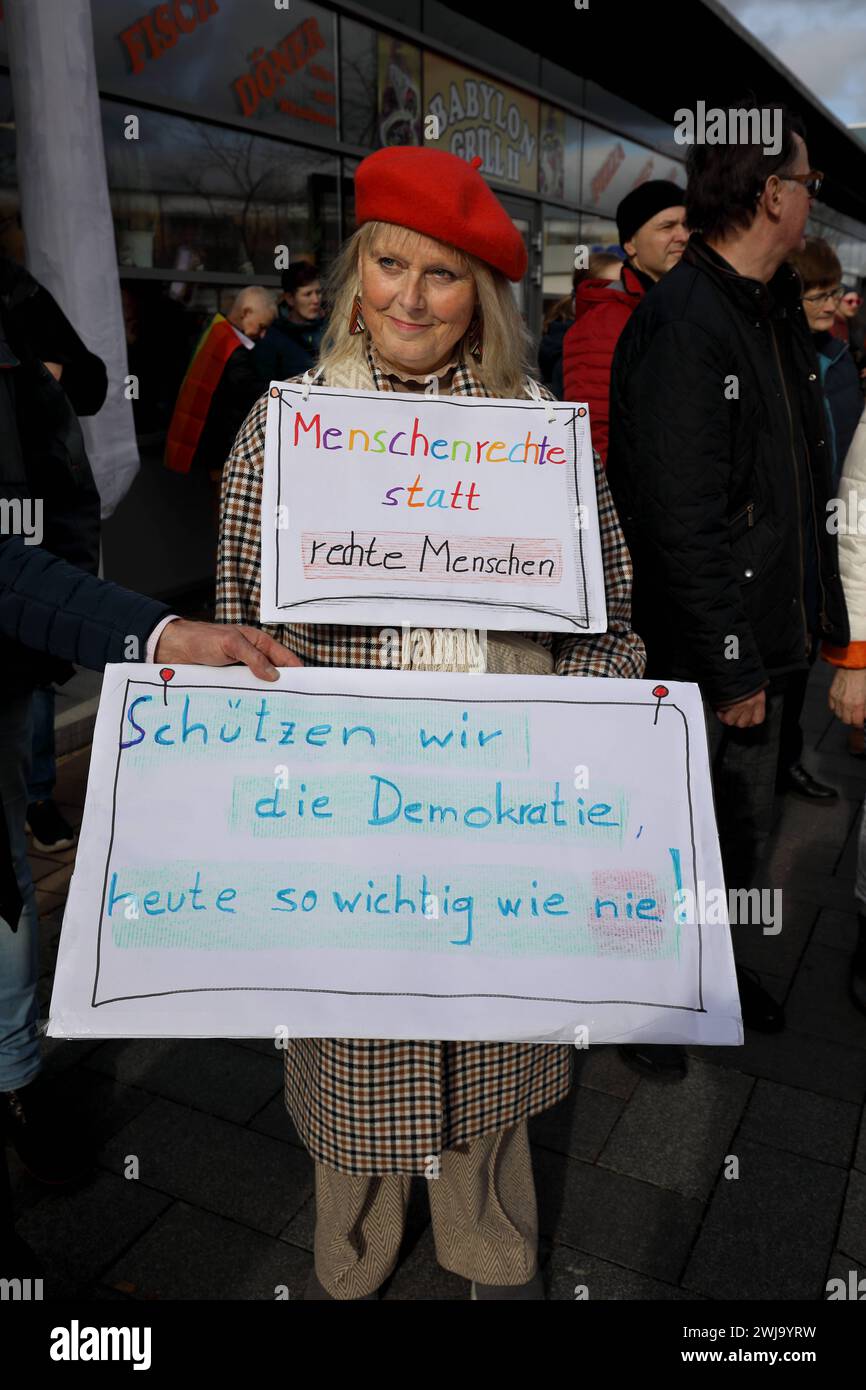 FISCH
DÖNER
BABYLON
GRILL II
Menschenrechte
statt
rechte Menschen
Schützen wir
die Demokratie,
heute so wichtig wie nie!
alamy
Image ID: 2WJ9YRW
www.alamy.com